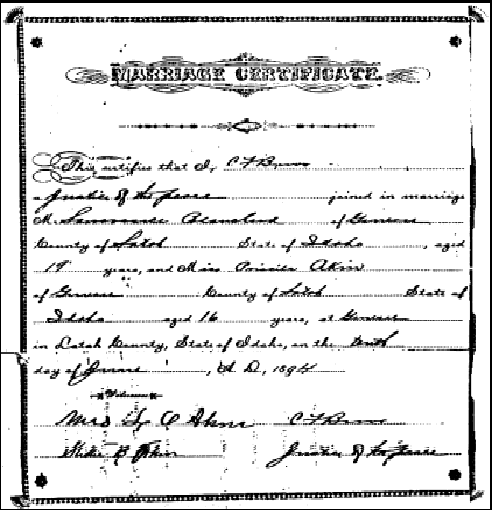 MARRIAGE CERTIFICATE.
This certifies that I, C F Burns
a Justice of the peace joined in marriage
M. Blanchard of Genesee
County of Latah State of Idaho, aged
19 years, and Miss Akin
of Genesee County of Latah State of
Idaho aged 16 years, at Genesee
in Latah County, State of Idaho, on the tenth
day of June, A. D., 1894
Witnesses
Mrs C Akin C F Burns
B Akin Justice of the peace